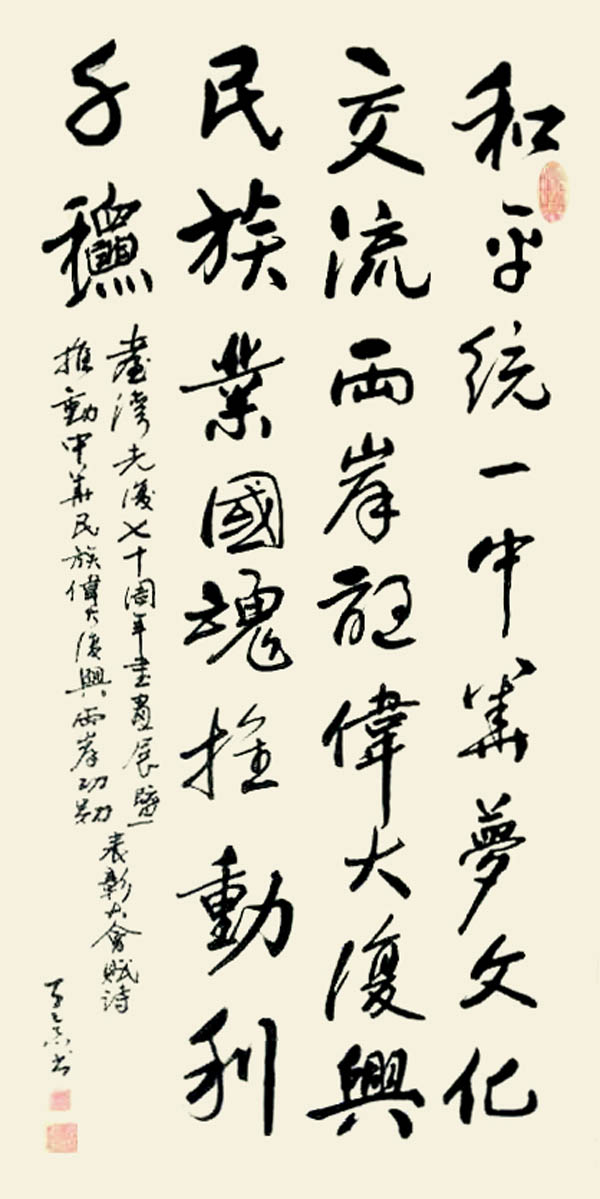 和平統一中華夢文化
交流兩岸誼偉大復興
民族業國魂推動利
千龝
臺灣光復七十周年書畫展暨
推動中華民族偉大復興兩岸功勛
表彰大會賦詩